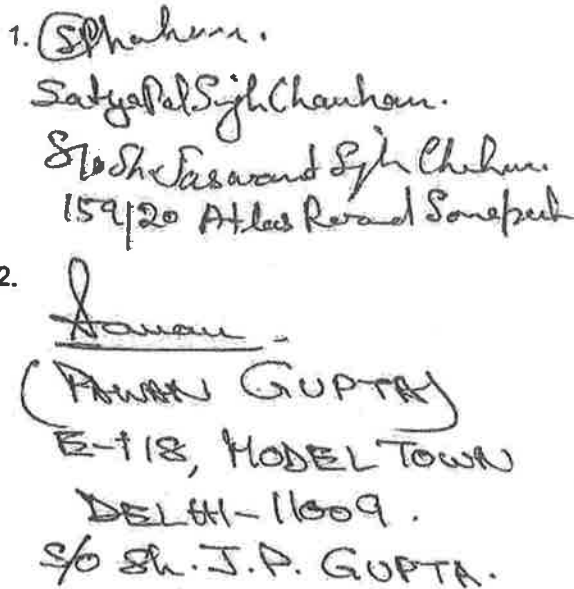 1. SPhahum.
Satya Pal Singh Chauhan.
S/o Sh Jaswant Singh Chuhan
159/20 Atlas Road Sonepat
2. Pawan
(PAWAN GUPTA)
E-118, MODEL TOWN
DELHI-11009.
S/o Sh. J.P. GUPTA.